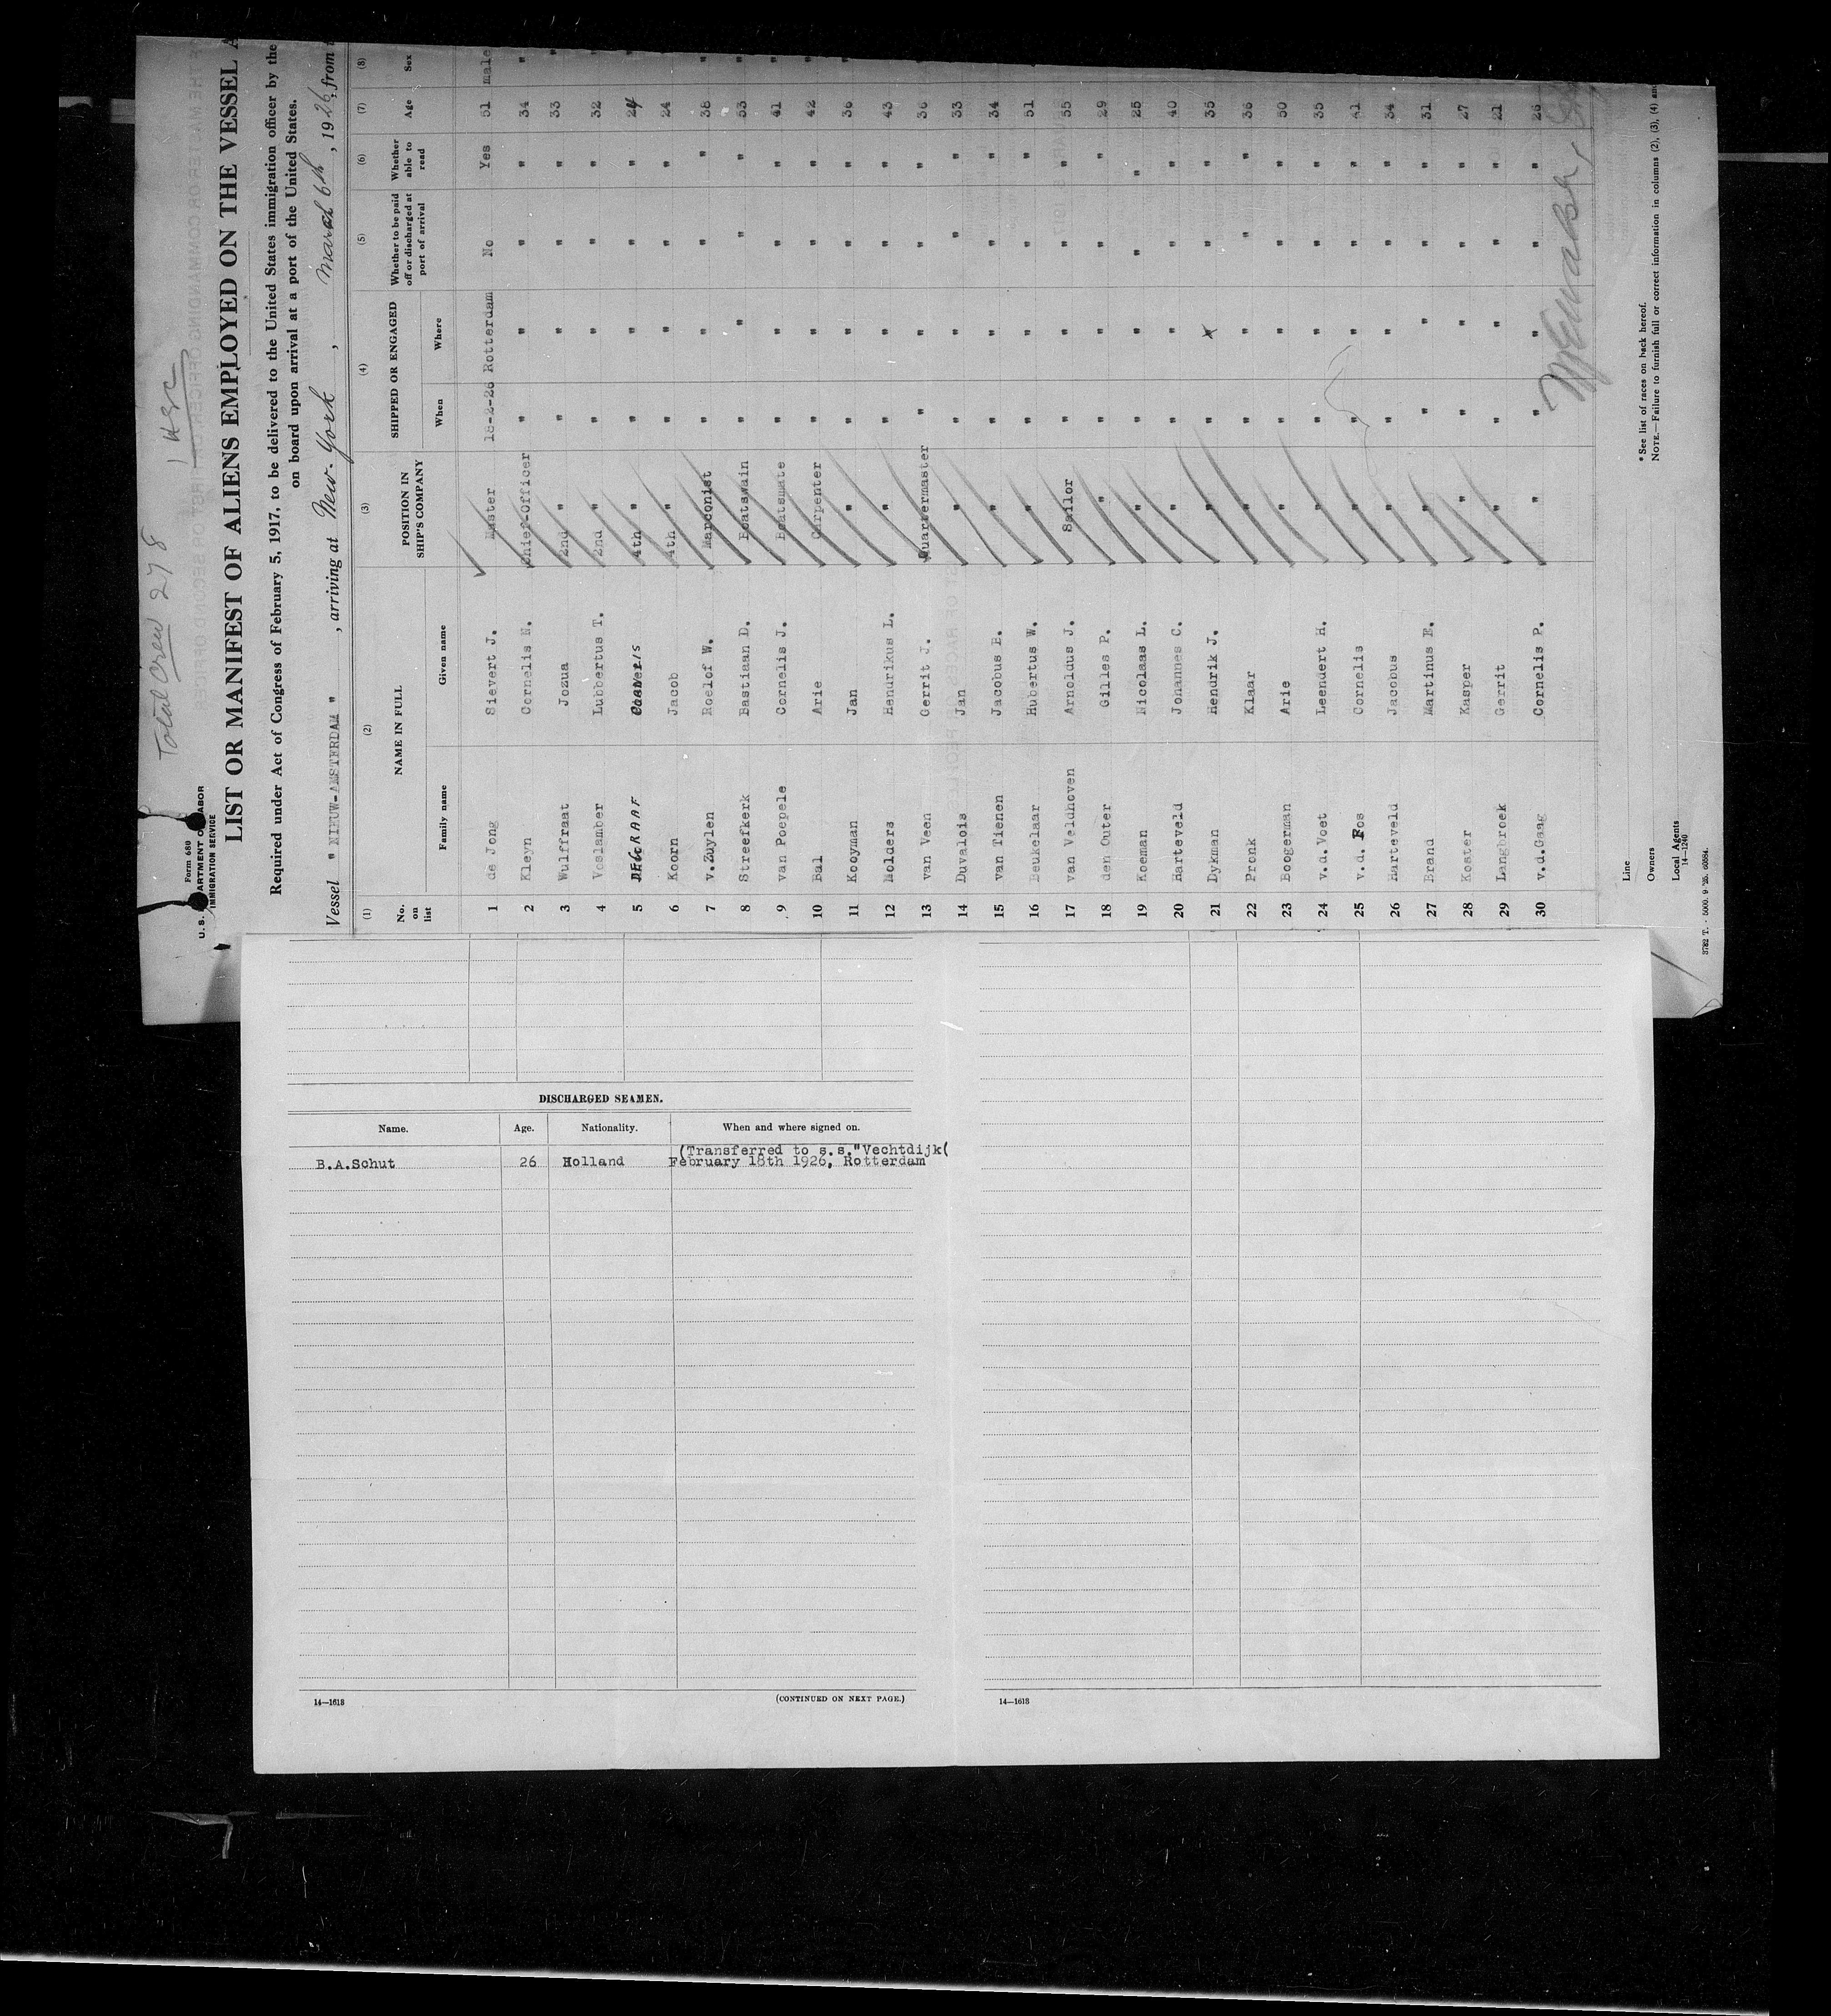 Total Crew 278
Form 689
U. S. DEPARTMENT OF LABOR
IMMIGRATION SERVICE
LIST OR MANIFEST OF ALIENS EMPLOYED ON THE VESSEL A
Required under Act of Congress of February 5, 1917, to be delivered to the United States immigration officer by the
on board upon arrival at a port of the United States.
Vessel " NIEUW-AMSTERDAM " , arriving at New-York , March 6th , 1926, from
(1) (2) (3) (4) (5) (6) (7) (8)
No. on list NAME IN FULL POSITION IN SHIP'S COMPANY SHIPPED OR ENGAGED Whether to be paid off or discharged at port of arrival Whether able to read Age Sex
Family name Given name When Where
1 de Jong Sievert J. Master 18-2-26 Rotterdam No Yes 51 male
2 Kleyn Cornelis N. Chief-Officer " " " " 34 "
3 Wulffraat Jozua 2nd " " " " " 33 "
4 Voslamber Lubbertus T. 2nd " " " " " 32 "
5 DE GRAAF 4th " " " " " 24 "
6 Koorn Jacob 4th " " " " " 24
7 v.Zuylen Roelof W. Marconist " " " " 38 "
8 Streefkerk Bastiaan D. Boatswain " " " " 53 "
9 van Poepele Cornelis J. Boatsmate " " " " 41 "
10 Bal Arie Carpenter " " " " 42 "
11 Kooyman Jan " " " " " 36 "
12 Molders Hendrikus L. " " " " " 43
13 van Veen Gerrit J. Quartermaster " " " " 36
14 Duvalois Jan " " " " " 33
15 van Tienen Jacobus B. " " " " " 34
16 Beukelaar Hubertus W. " " " " " 51
17 van Veldhoven Arnoldus J. Sailor " " " " 55
18 den Outer Gilles P. " " " " " 29
19 Koeman Nicolaas L. " " " " " 25
20 Harteveld Johannes C. " " " " " 40
21 Dykman Hendrik J. " " x " " 35
22 Pronk Klaar " " " " " 36
23 Boogerman Arie " " " " " 50
24 v.d.Voet Leendert H. " " " " " 35
25 v.d. Fos Cornelis " " " " " 41
26 Harteveld Jacobus " " " " " 34
27 Brand Martinus E. " " " " " 31
28 Koster Kasper " " " " " 27
29 Langbroek Gerrit " " " " " 21
30 v.d.Gaag Cornelis P. " " " " " 26
Line
Owners
Local Agents
14—1240
* See list of races on back hereof.
NOTE.—Failure to furnish full or correct information in columns (2), (3), (4) and
DISCHARGED SEAMEN.
Name. Age. Nationality. When and where signed on.
(Transferred to s.s."Vechtdijk(
B.A.Schut 26 Holland February 18th 1926, Rotterdam
14—1618 (CONTINUED ON NEXT PAGE.)
14—1618